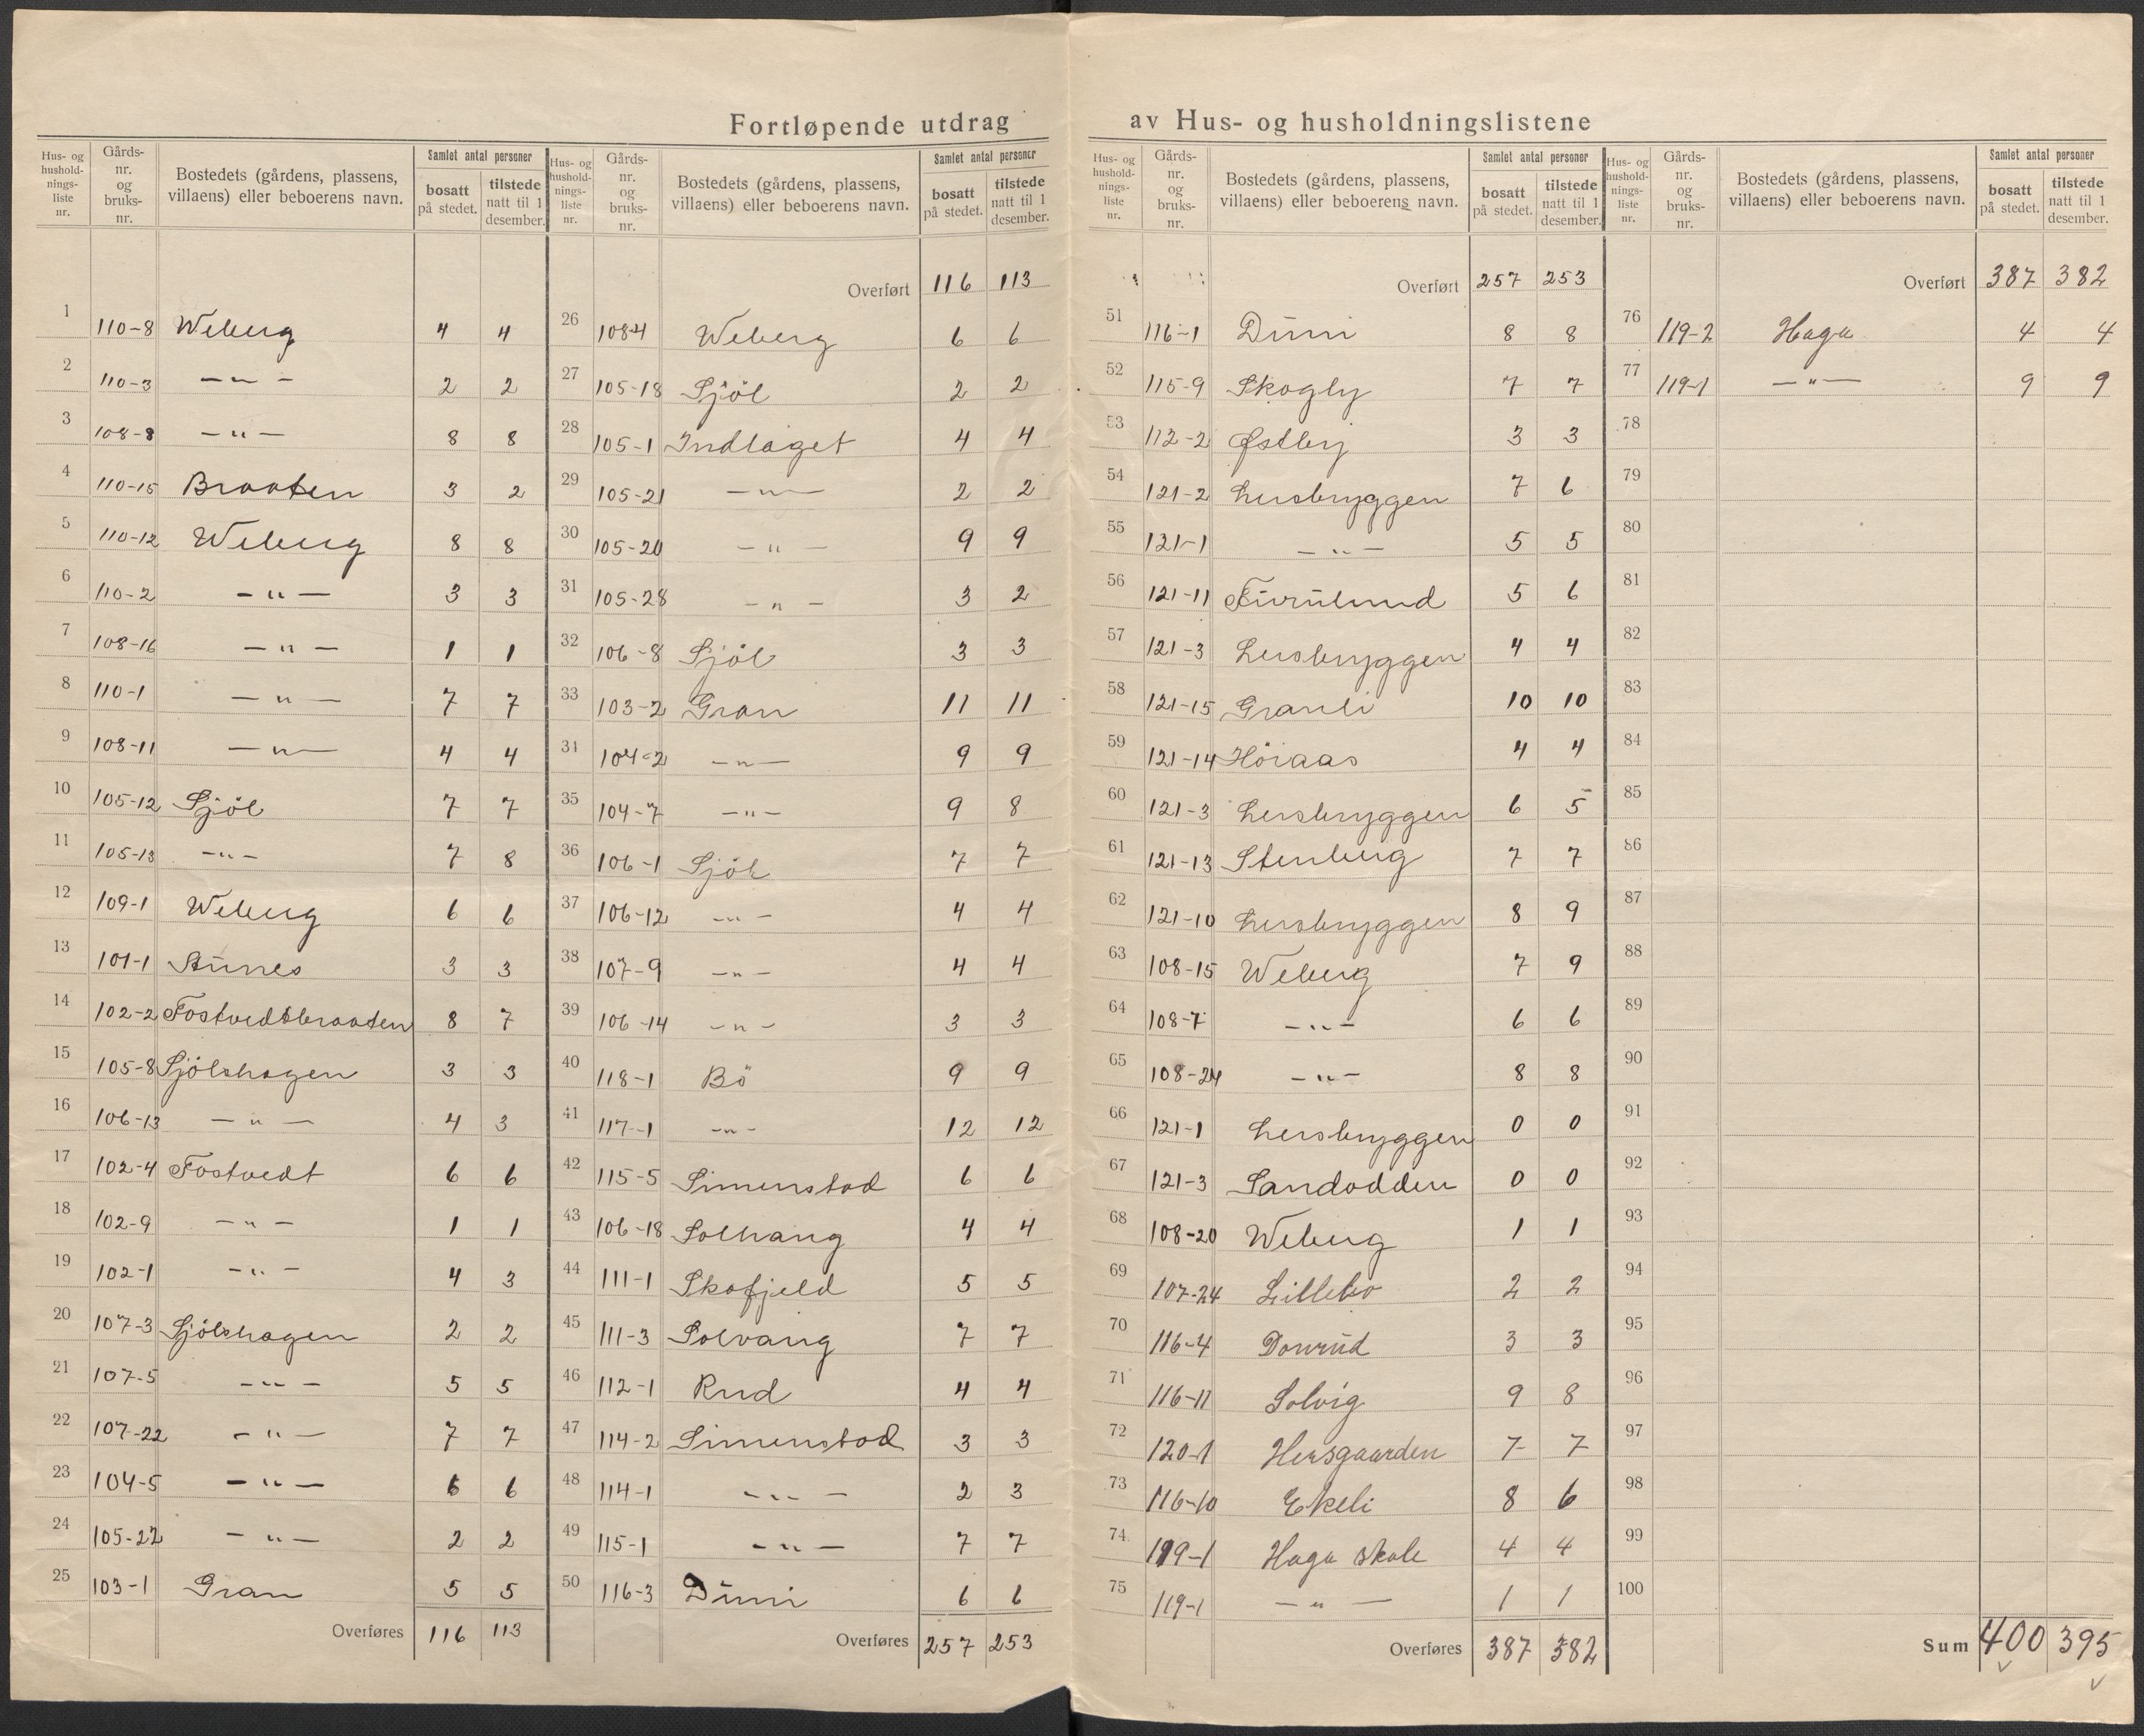 Fortløpende utdrag av Hus- og husholdningslistene
Hus- og hushold-nings-liste nr. | Gårds-nr. og bruks-nr. | Bostedets (gårdens, plassens, villaens) eller beboerens navn. | Samlet antal personer | bosatt på stedet. | tilstede natt til 1 desember.
1 110-8 Weberg 4 4
2 110-3 — " — 2 2
3 108-8 — " — 8 8
4 110-15 Braaten 3 2
5 110-12 Weberg 8 8
6 110-2 — " — 3 3
7 108-16 — " — 1 1
8 110-1 — " — 7 7
9 108-11 — " — 4 4
10 105-12 Sjöl 7 7
11 105-13 — " — 7 8
12 109-1 Weberg 6 6
13 101-1 Aunes 3 3
14 102-2 Fostvedtbraaten 8 7
15 105-8 Sjölshagen 3 3
16 106-13 — " — 4 3
17 102-4 Fostvedt 6 6
18 102-9 — " — 1 1
19 102-1 — " — 4 3
20 107-3 Sjölshagen 2 2
21 107-5 — " — 5 5
22 107-22 — " — 7 7
23 104-5 — " — 6 6
24 105-22 — " — 2 2
25 103-1 Gran 5 5
Overføres 116 113
Hus- og hushold-nings-liste nr. | Gårds-nr. og bruks-nr. | Bostedets (gårdens, plassens, villaens) eller beboerens navn. | Samlet antal personer | bosatt på stedet. | tilstede natt til 1 desember.
Overført 116 113
26 108-4 Weberg 6 6
27 105-18 Sjöl 2 2
28 105-1 Indlaget 4 4
29 105-21 — " — 2 2
30 105-20 — " — 9 9
31 105-28 — " — 3 2
32 106-8 Sjöl 3 3
33 103-2 Gran 11 11
34 104-2 — " — 9 9
35 104-7 — " — 9 8
36 106-1 Sjöl 7 7
37 106-12 — " — 4 4
38 107-9 — " — 4 4
39 106-14 — " — 3 3
40 118-1 Bö 9 9
41 117-1 — " — 12 12
42 115-5 Simenstad 6 6
43 106-18 Solhaug 4 4
44 111-1 Skofjeld 5 5
45 111-3 Solvang 7 7
46 112-1 Rud 4 4
47 114-2 Simenstad 3 3
48 114-1 — " — 2 3
49 115-1 — " — 7 7
50 116-3 Duni 6 6
Overføres 257 253
Hus- og hushold-nings-liste nr. | Gårds-nr. og bruks-nr. | Bostedets (gårdens, plassens, villaens) eller beboerens navn. | Samlet antal personer | bosatt på stedet. | tilstede natt til 1 desember.
Overført 257 253
51 116-1 Duni 8 8
52 115-9 Skogly 7 7
53 112-2 Østby 3 3
54 121-2 Lersbryggen 7 6
55 121-1 — " — 5 5
56 121-11 Furulund 5 6
57 121-3 Lersbryggen 4 4
58 121-15 Granli 10 10
59 121-14 Höiaas 4 4
60 121-3 Lersbryggen 6 5
61 121-13 Stenberg 7 7
62 121-10 Lersbryggen 8 9
63 108-15 Weberg 7 9
64 108-7 — " — 6 6
65 108-24 — " — 8 8
66 121-1 Lersbryggen 0 0
67 121-3 Sandodden 0 0
68 108-20 Weberg 1 1
69 107-24 Lillebo 2 2
70 116-4 Donrud 3 3
71 116-11 Solvig 9 8
72 120-1 Hersgaarden 7 7
73 116-10 Ekeli 8 6
74 119-1 Haga skole 4 4
75 119-1 — " — 1 1
Overføres 387 382
Hus- og hushold-nings-liste nr. | Gårds-nr. og bruks-nr. | Bostedets (gårdens, plassens, villaens) eller beboerens navn. | Samlet antal personer | bosatt på stedet. | tilstede natt til 1 desember.
Overført 387 382
76 119-2 Haga 4 4
77 119-1 — " — 9 9
78
79
80
81
82
83
84
85
86
87
88
89
90
91
92
93
94
95
96
97
98
99
100
Sum 400 395